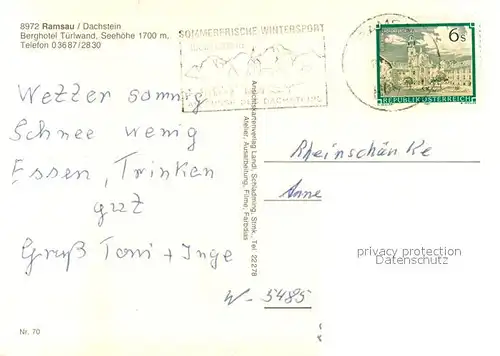 8972 Ramsau / Dachstein
Berghotel Türlwand, Seehöhe 1700 m.
Telefon 03687/2830
SOMMERFRISCHE WINTERSPORT
6s
REPUBLIK ÖSTERREICH
Wetter sonnig
Schnee wenig
Essen, Trinken
gut
Gruß Toni + Inge
Ansichtskartenverlag Landl, Schladming, Stmk., Tel. 22278
Atelier, Ausarbeitung, Filme, Farbdias
Rheinschänke
Anne
W-5485
privacy protection
Datenschutz
Nr. 70